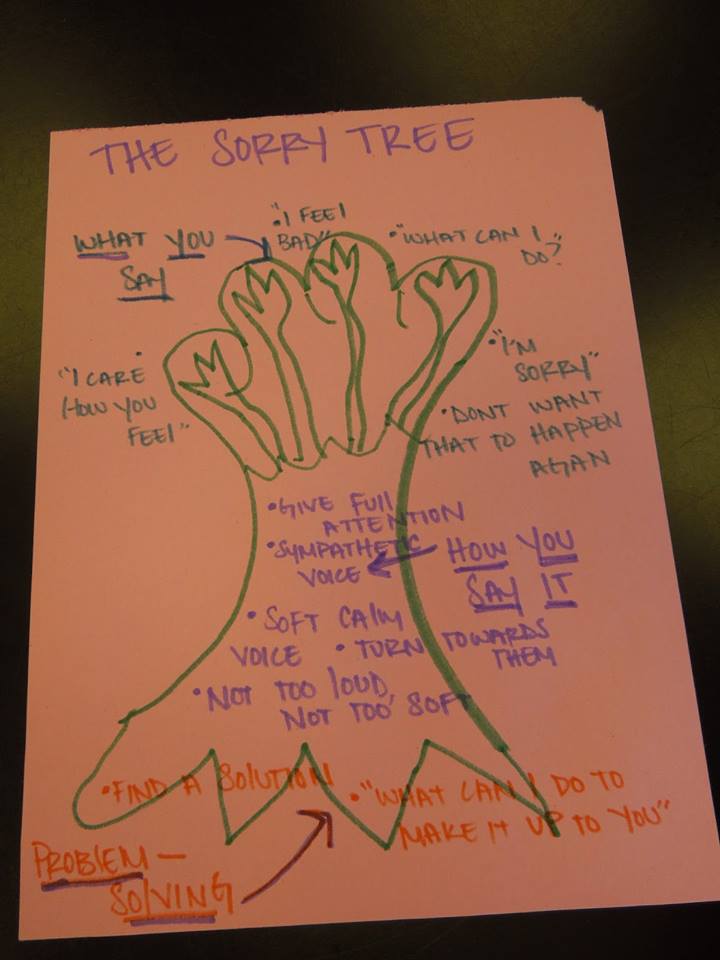 THE SORRY TREE
WHAT YOU
SAY
• "I FEEL
BAD"
• "WHAT CAN I
DO?
"I CARE
HOW YOU
FEEL"
• "I'M
SORRY"
• DONT WANT
THAT TO HAPPEN
AGAN
• GIVE FULL
ATTENTION
• SYMPATHETIC
VOICE
HOW YOU
SAY IT
• SOFT CALM
VOICE
• TURN TOWARDS
THEM
• NOT TOO LOUD,
NOT TOO SOFT
• FIND A SOLUTION
• "WHAT CAN I DO TO
MAKE IT UP TO YOU"
PROBLEM —
SOLVING